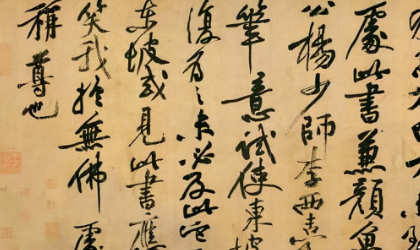 處此書兼顏魯
公楊少師李西臺
筆意試使東坡
復為之未必及此它
東坡或見此書應
笑我於無佛處
稱尊也